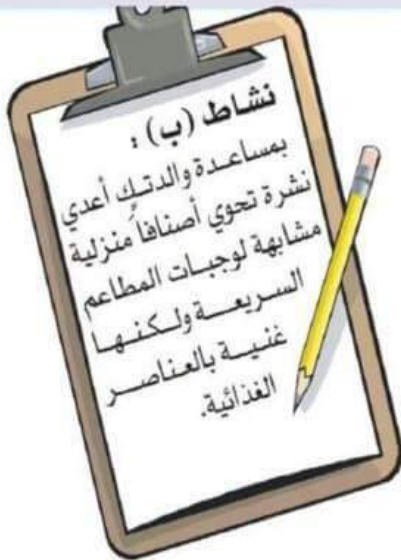 نشاط (ب) :
بمساعدة والدتكِ أعدي
نشرة تحوي أصنافاً منزلية
مشابهة لوجبات المطاعم
السريعة ولكنها
غنية بالعناصر
الغذائية.